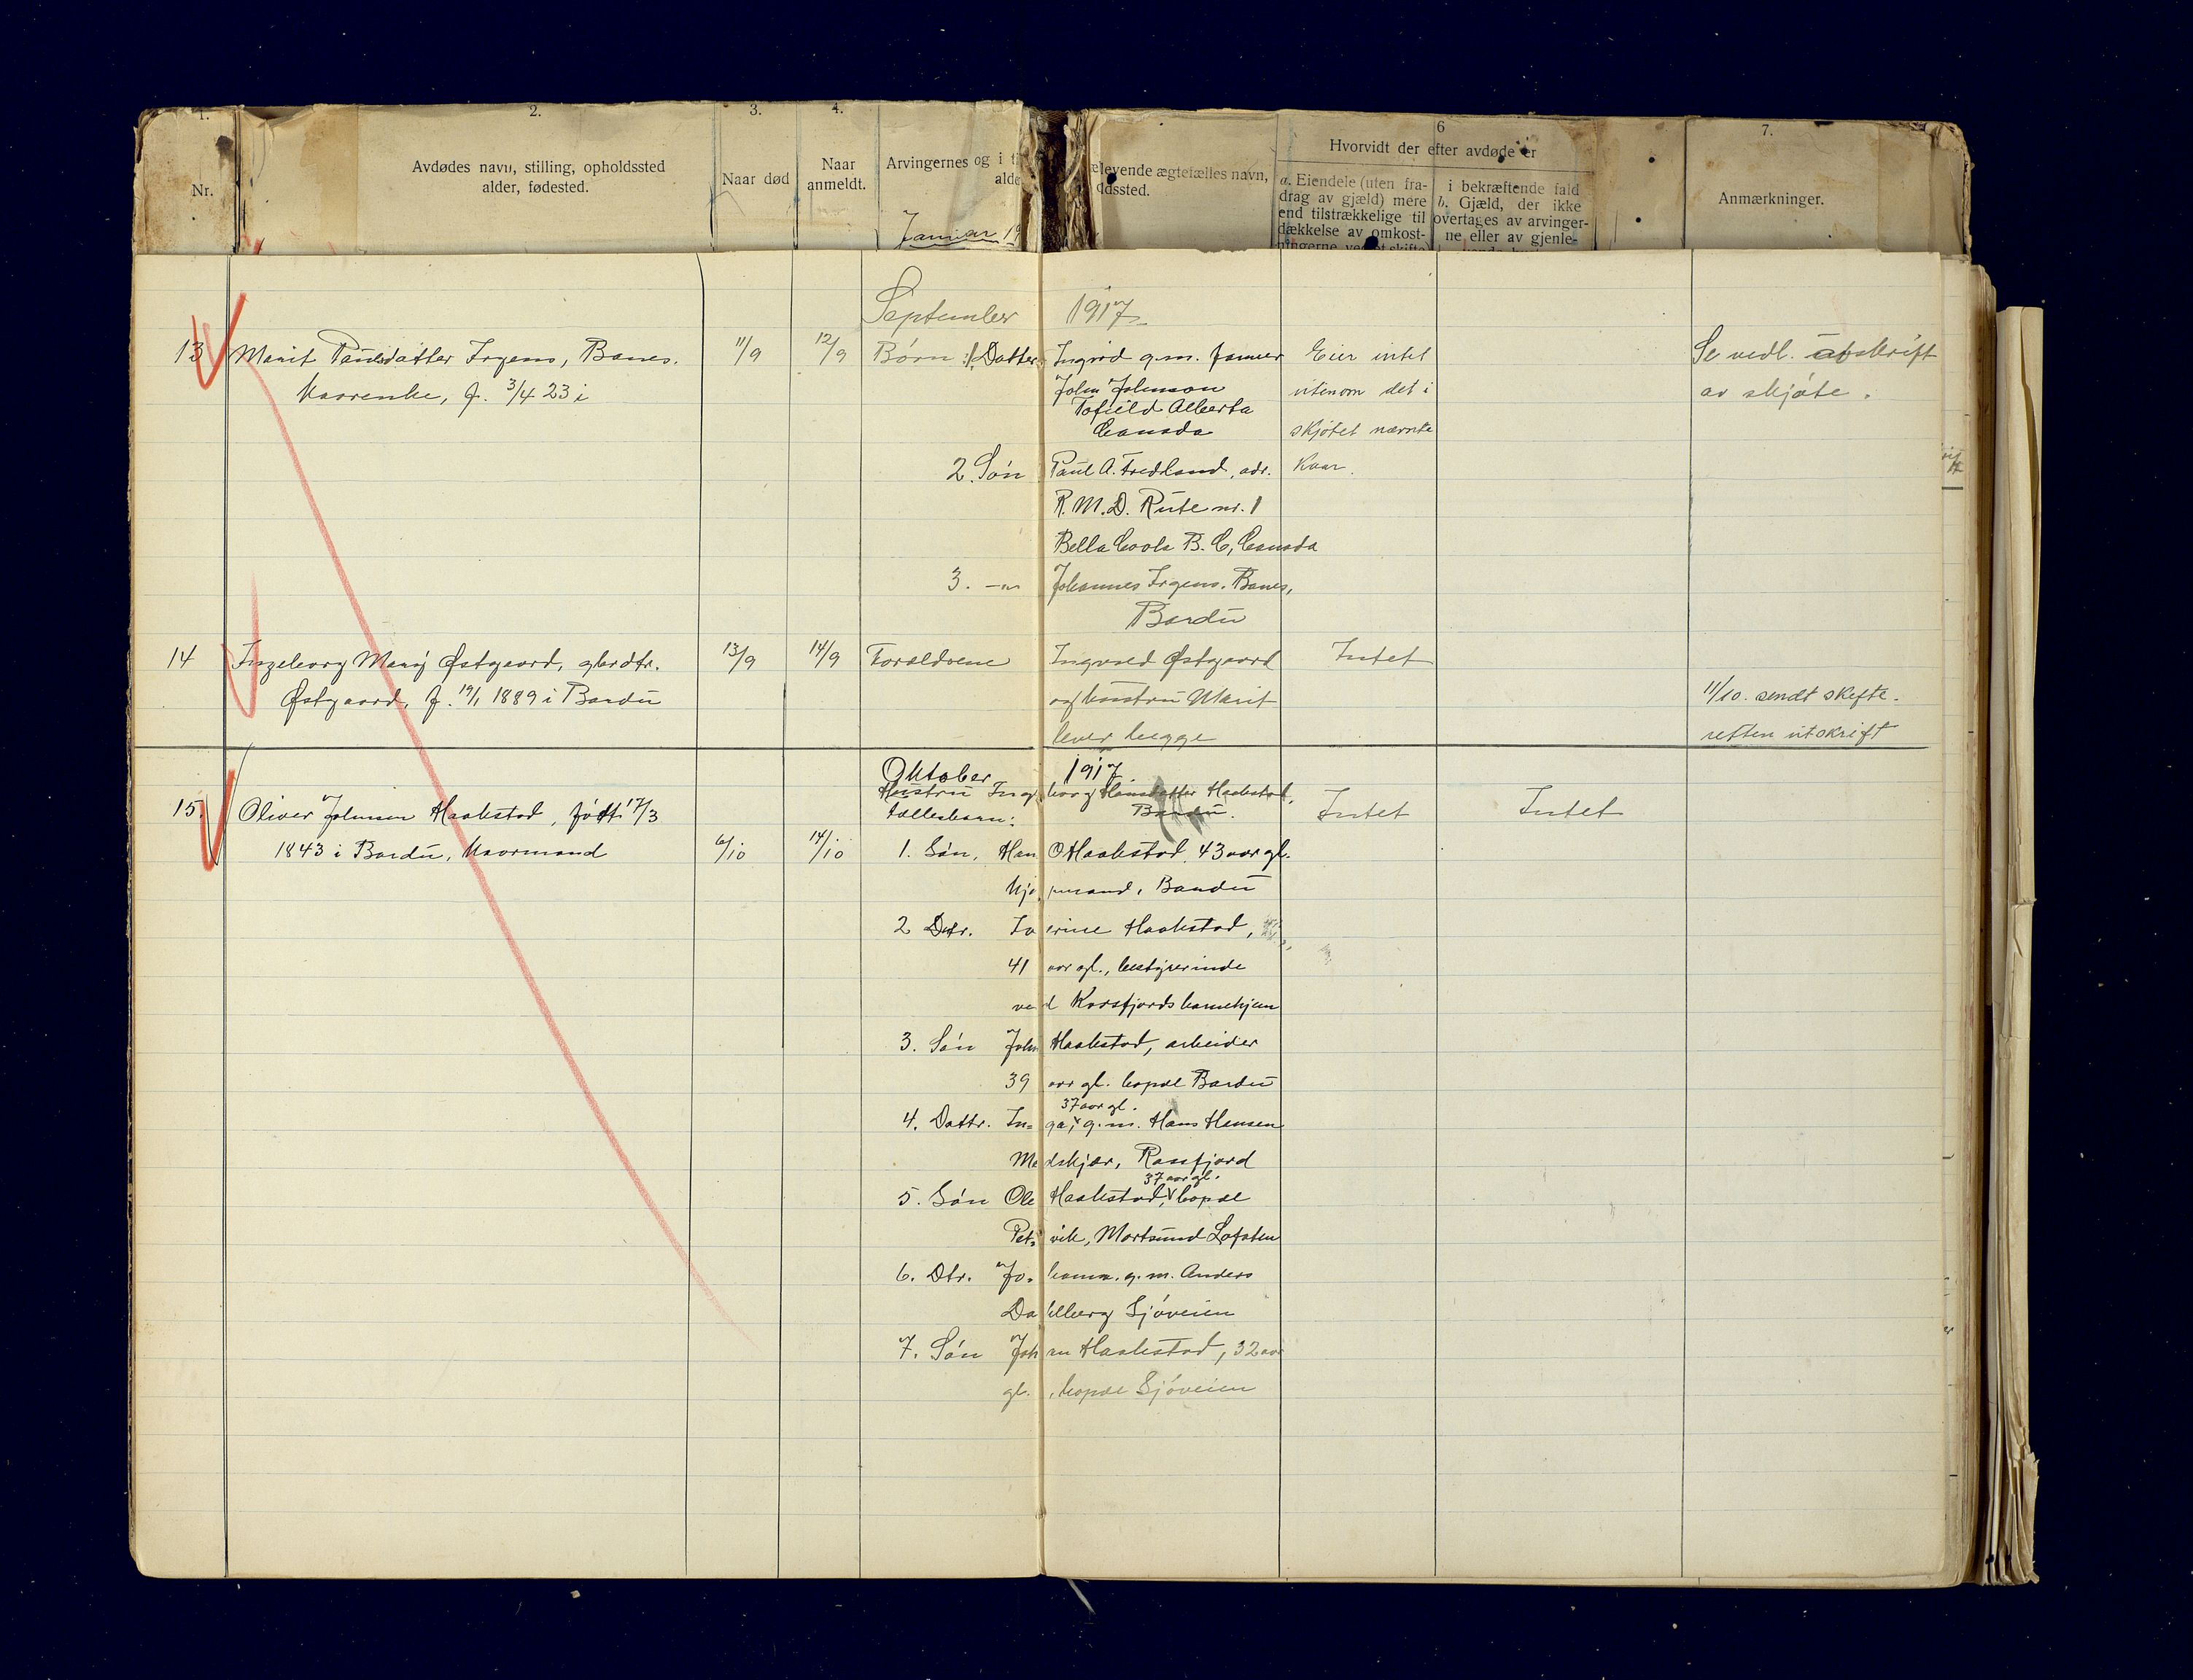 1.
2.
3.
4.
6
7.
Nr.
Avdødes navn, stilling, opholdssted
alder, fødested.
Naar død
Naar
anmeldt.
Arvingernes og i ti
alde
elevende ægtefælles navn,
dssted.
Hvorvidt der efter avdøde er
a. Eiendele (uten fra-
drag av gjæld) mere
end tilstrækkelige til
dækkelse av omkost-
ningerne ved et skifte)
i bekræftende fald
b. Gjæld, der ikke
overtages av arvinger-
ne eller av gjenle-
Anmærkninger.
Januar 19
September 1917
13 Marit Paulsdatter Irgens, Banes. 11/9 12/9 Børn: 1. Datter Ingrid g.m. farmer Eier intet Se vedl. avskrift
Kaarenke, f. 3/4 23 i John Johnson utenom det i av skjøte.
Tofield Alberta
Canada skjøtet nævnte
2. Søn Paul A. Fredland, adr. Kaar.
R.M.D. Rute nr. 1
Bella Coola B.C, Canada
3. -"- Johannes Irgens. Banes,
Bardu
14 Ingeborg Marij Østgaard, gbrdtr. 13/9 14/9 Forældrene Ingvald Østgaard Intet
Østgaard, f. 19/1 1889 i Bardu og hustru Marit 11/10. sendt skifte-
lever begge retten utskrift
Oktober 1917
Hustru Ingeborg Hansdatter Haakstad,
15. Oliver Johnsen Haakstad, født 17/3 Fællesbarn: Bardu. Intet Intet
1843 i Bardu, Kaarmand 6/10 14/10 1. Søn, Han O Haakstad, 43 aar gl.
kjø mand, Bardu
2 Dtr. erine Haakstad,
41 aar gl., bestyrerinde
ved Korsfjords barnehjem
3. Søn John Haakstad, arbeider
39 aar gl. bopæl Bardu
37 aar gl.
4. Dattr. In= ga, g.m. Hans Hansen
Medskjær, Rossfjord
37 aar gl.
5. Søn Ole Haakstad, bopæl
Petvik, Mortsund Lofoten
6. Dtr. Jo= hanna. g.m. Anders
Dahlberg Sjøveien
7. Søn Johan Haakstad, 32 aar
gl., bopæl Sjøveien